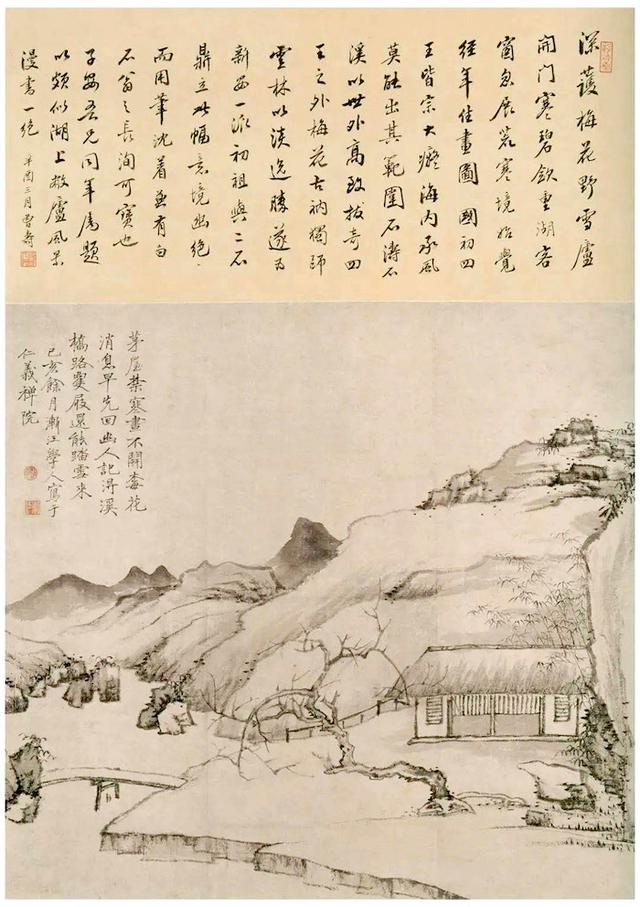 深護梅花野雪廬
開門寒碧歛重湖客
窗忽展荒寒境始覺
經年住畫圖 國初四
王皆宗大癡海内承風
莫能出其範圍石濤石
溪以世外高致拔奇四
王之外梅花古衲獨師
雲林以淡逸勝遂為
新安一派初祖與二石
鼎立此幅意境幽絕
而用筆沈着兼有白
石翁之長洵可寶也
子安吾兄同年屬題
以頗似湖上敝廬風景
漫書一絕 辛酉三月曾壽
茅屋禁寒晝不開梅花
消息早先回幽人記得溪
橋路雙屐還能踏雪來
己亥餘月漸江學人寫于
仁義禅院